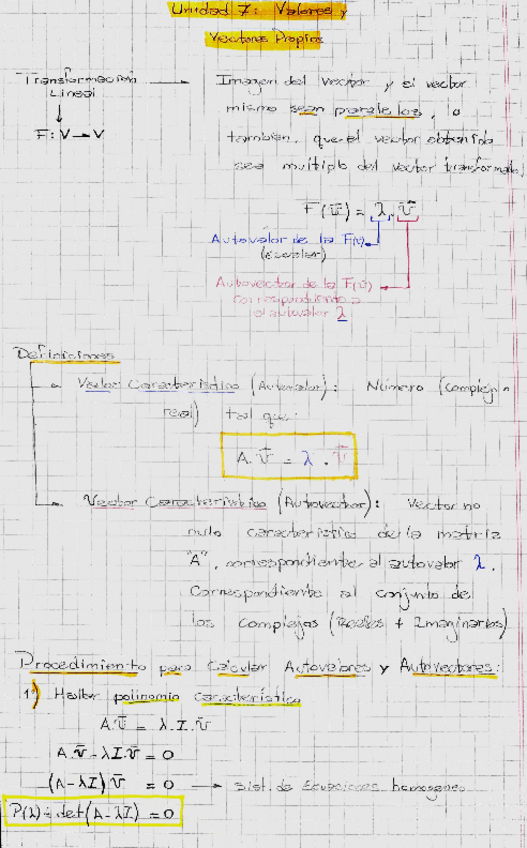 Unidad 7: Valores y
Vectores Propios
Transformación Lineal
F: V → V
Imagen del vector y el vector
mismo sean paralelos, o
también, que el vector obtenido
sea multiplo del vector transformado
F(v̅) = λ. v̅
Autovalor de la F(v̅)
(Escalar)
Autovector de la F(v̅)
correspondiente a
el autovalor λ
Definiciones
Valor Caracteristico (Autovalor): Número (complejo o
real) tal que:
A. v̅ = λ . v̅
Vector Caracteristico (Autovector): Vector no
nulo caracteristico de la matriz
"A", correspondiente al autovalor λ.
Correspondiente al conjunto de
los complejos (Reales + Imaginarios)
Procedimiento para Calcular Autovalores y Autovectores:
1°) Hallar polinomio Característico
A.v̅ = λ.I.v̅
A.v̅ - λI.v̅ = 0
(A-λI) v̅ = 0 → Sist. de Ecuaciones homogeneo
P(λ) = det(A-λI) = 0